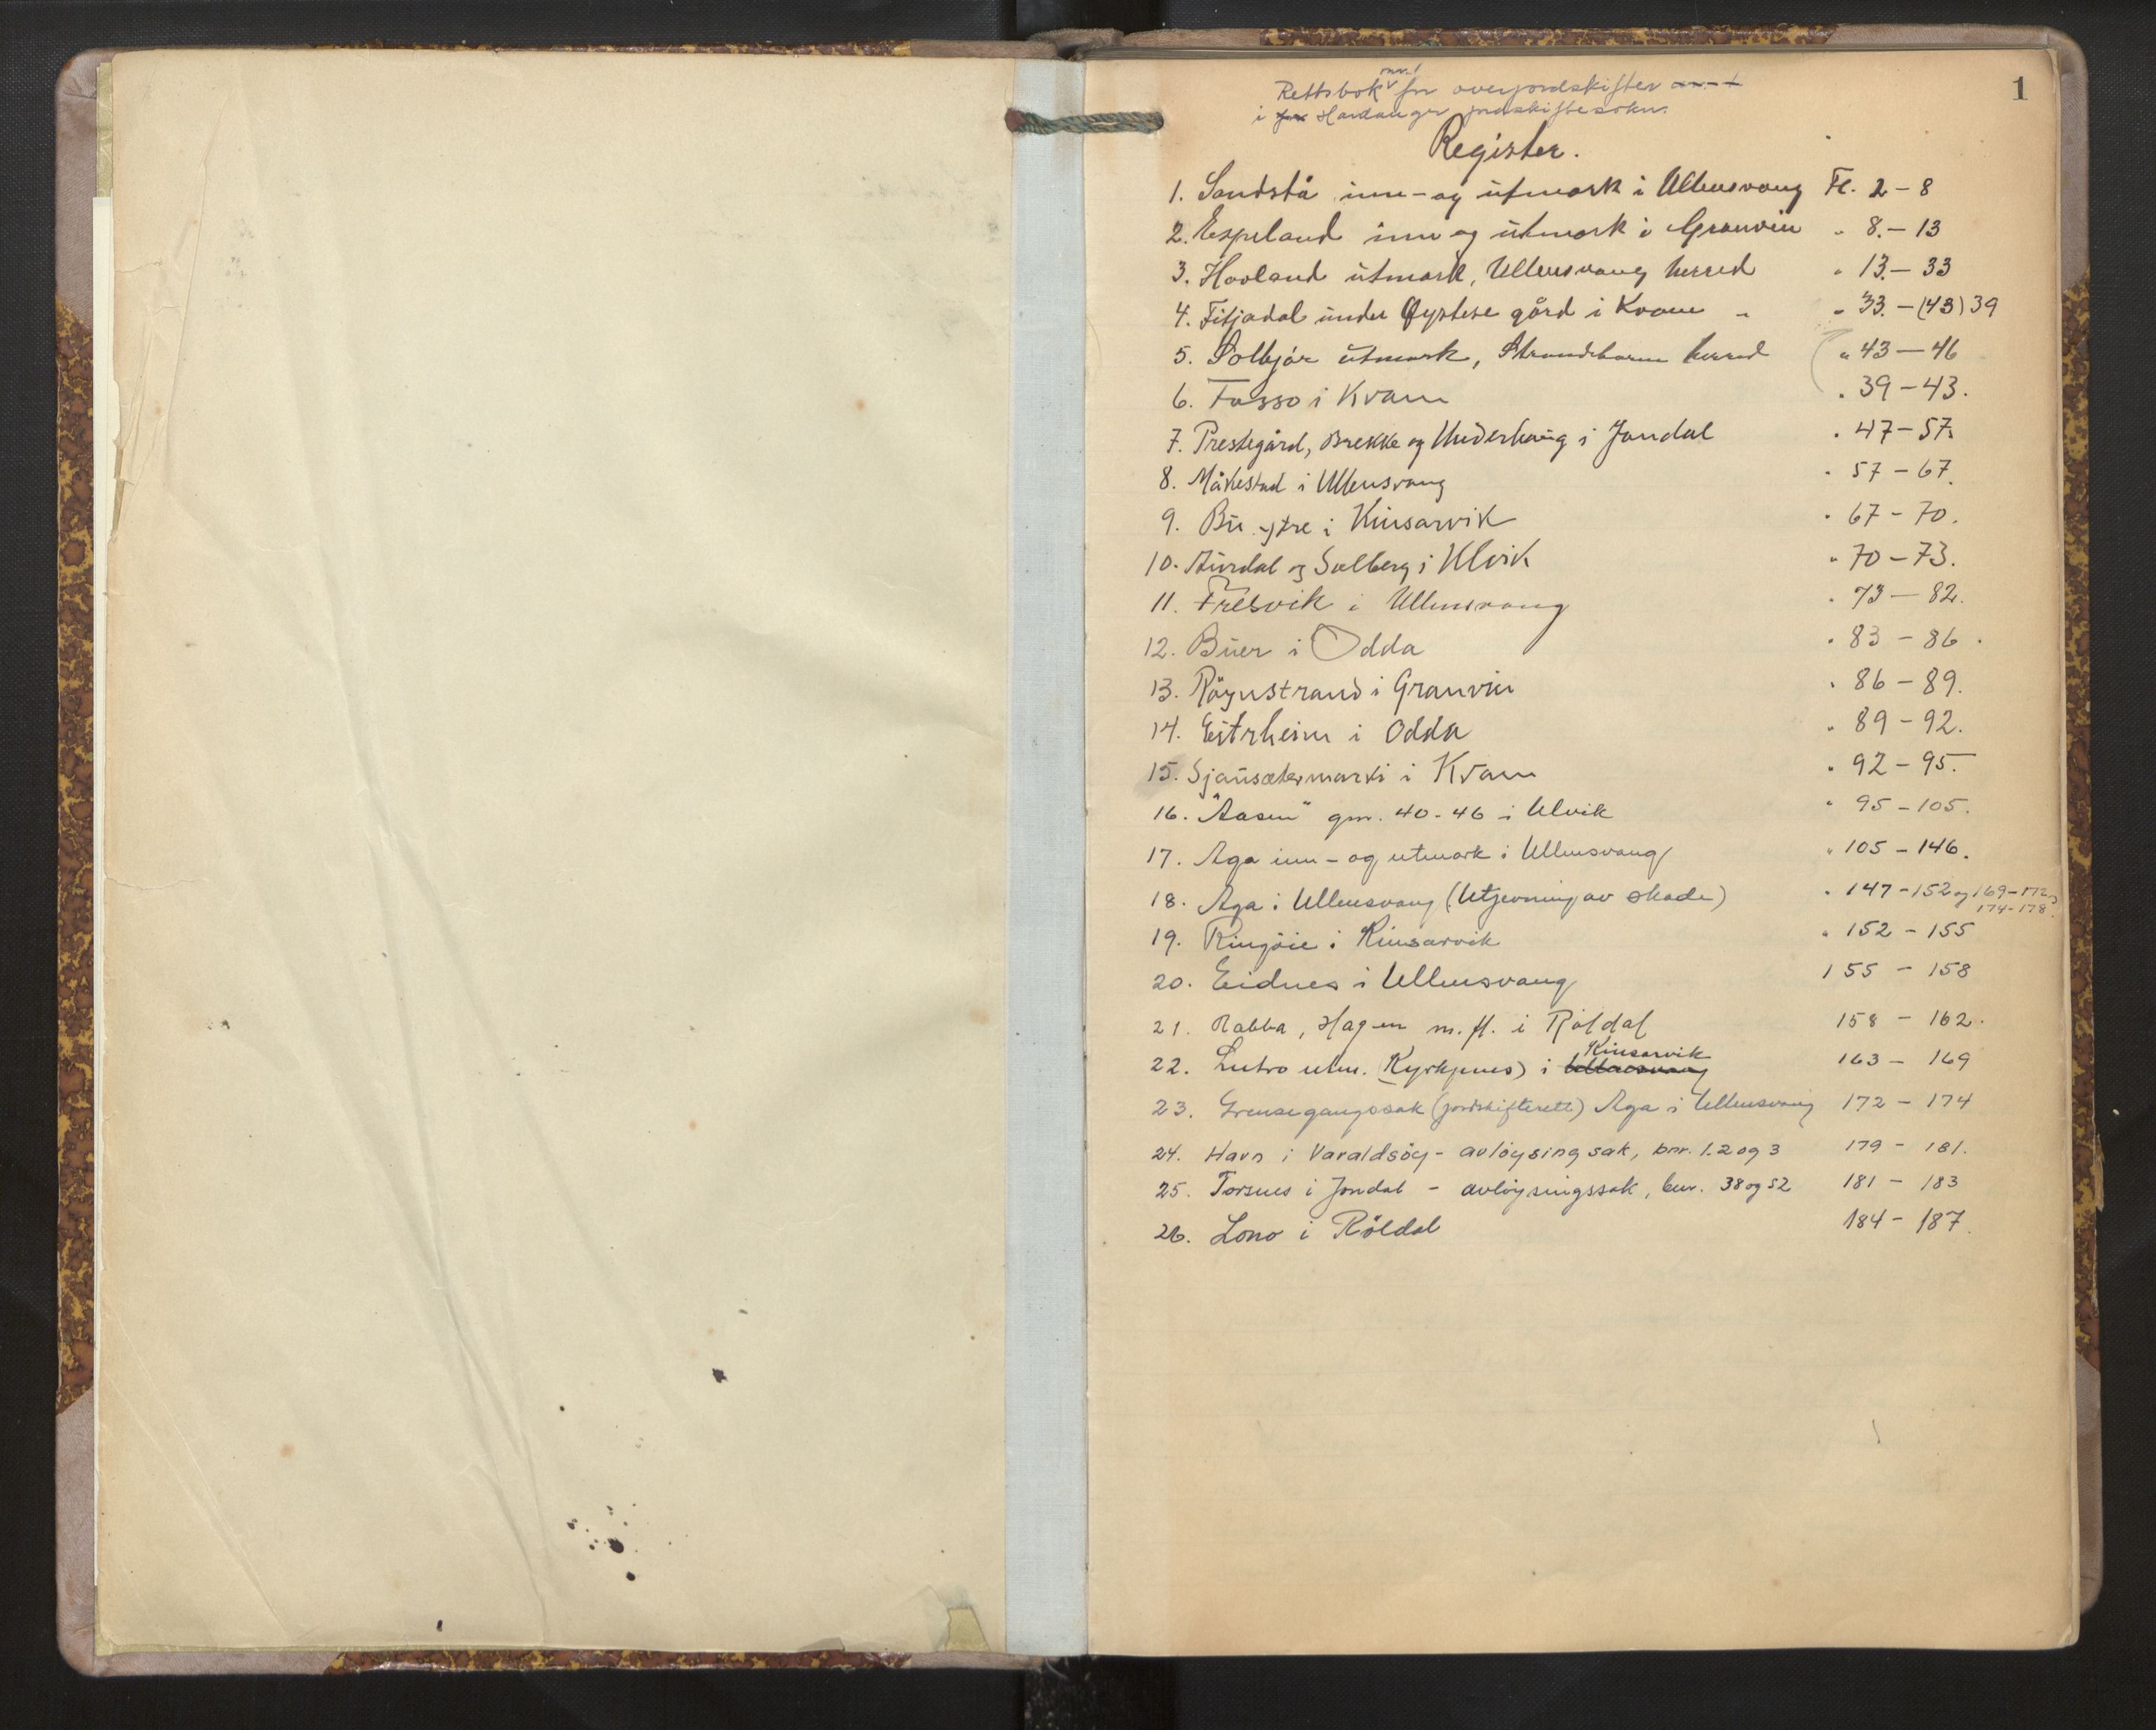 1
Rettsbok nr. 1 for overjordskifter
i Hardanger jordskiftesokn.
Register.
1. Sandstå inn- og utmark i Ullensvang Fl. 2 - 8
2. Espeland inn og utmark i Granvin " 8. - 13
3. Hovland utmark, Ullensvang herred " 13. - 33
4. Fitjadal under Øystese gård i Kvam " " 33. - (43) 39
5. Solbjør utmark, Strandebarm herred " 43 - 46
6. Fosso i Kvam " 39 - 43.
7. Prestegård, Brekke og Underhaug i Jondal " 47 - 57.
8. Måkestad i Ullensvang " 57 - 67.
9. Bu ytre i Kinsarvik " 67 - 70.
10. Aurdal og Solberg i Ulvik " 70 - 73.
11. Fresvik i Ullensvang " 73 - 82.
12. Buer i Odda " 83 - 86.
13. Röynstrand i Granvin " 86 - 89.
14. Eitrheim i Odda " 89 - 92.
15. Sjausætermarki i Kvam " 92 - 95.
16. "Aasen" gnr. 40-46 i Ulvik " 95 - 105.
17. Aga inn- og utmark i Ullensvang " 105 - 146.
18. Aga i Ullensvang (Utjevning av skade) " 147 - 152 og 169 - 172 og
174 - 178.
19. Ringöie i Kinsarvik " 152 - 155
20. Eidnes i Ullensvang 155 - 158
21. Rabba, Hagen m. fl. i Röldal 158 - 162.
22. Lutro utm. (Kyrkjenes) i Ullensvang Kinsarvik 163 - 169
23. Grensegangssak (jordskifterett) Aga i Ullensvang 172 - 174
24. Havn i Varaldsöy - avlöysingsak, bnr. 1.2 og 3 179 - 181.
25. Torsnes i Jondal - avlöysingssak, bnr. 38 og 52 181 - 183
26. Lono i Röldal 184 - 187.